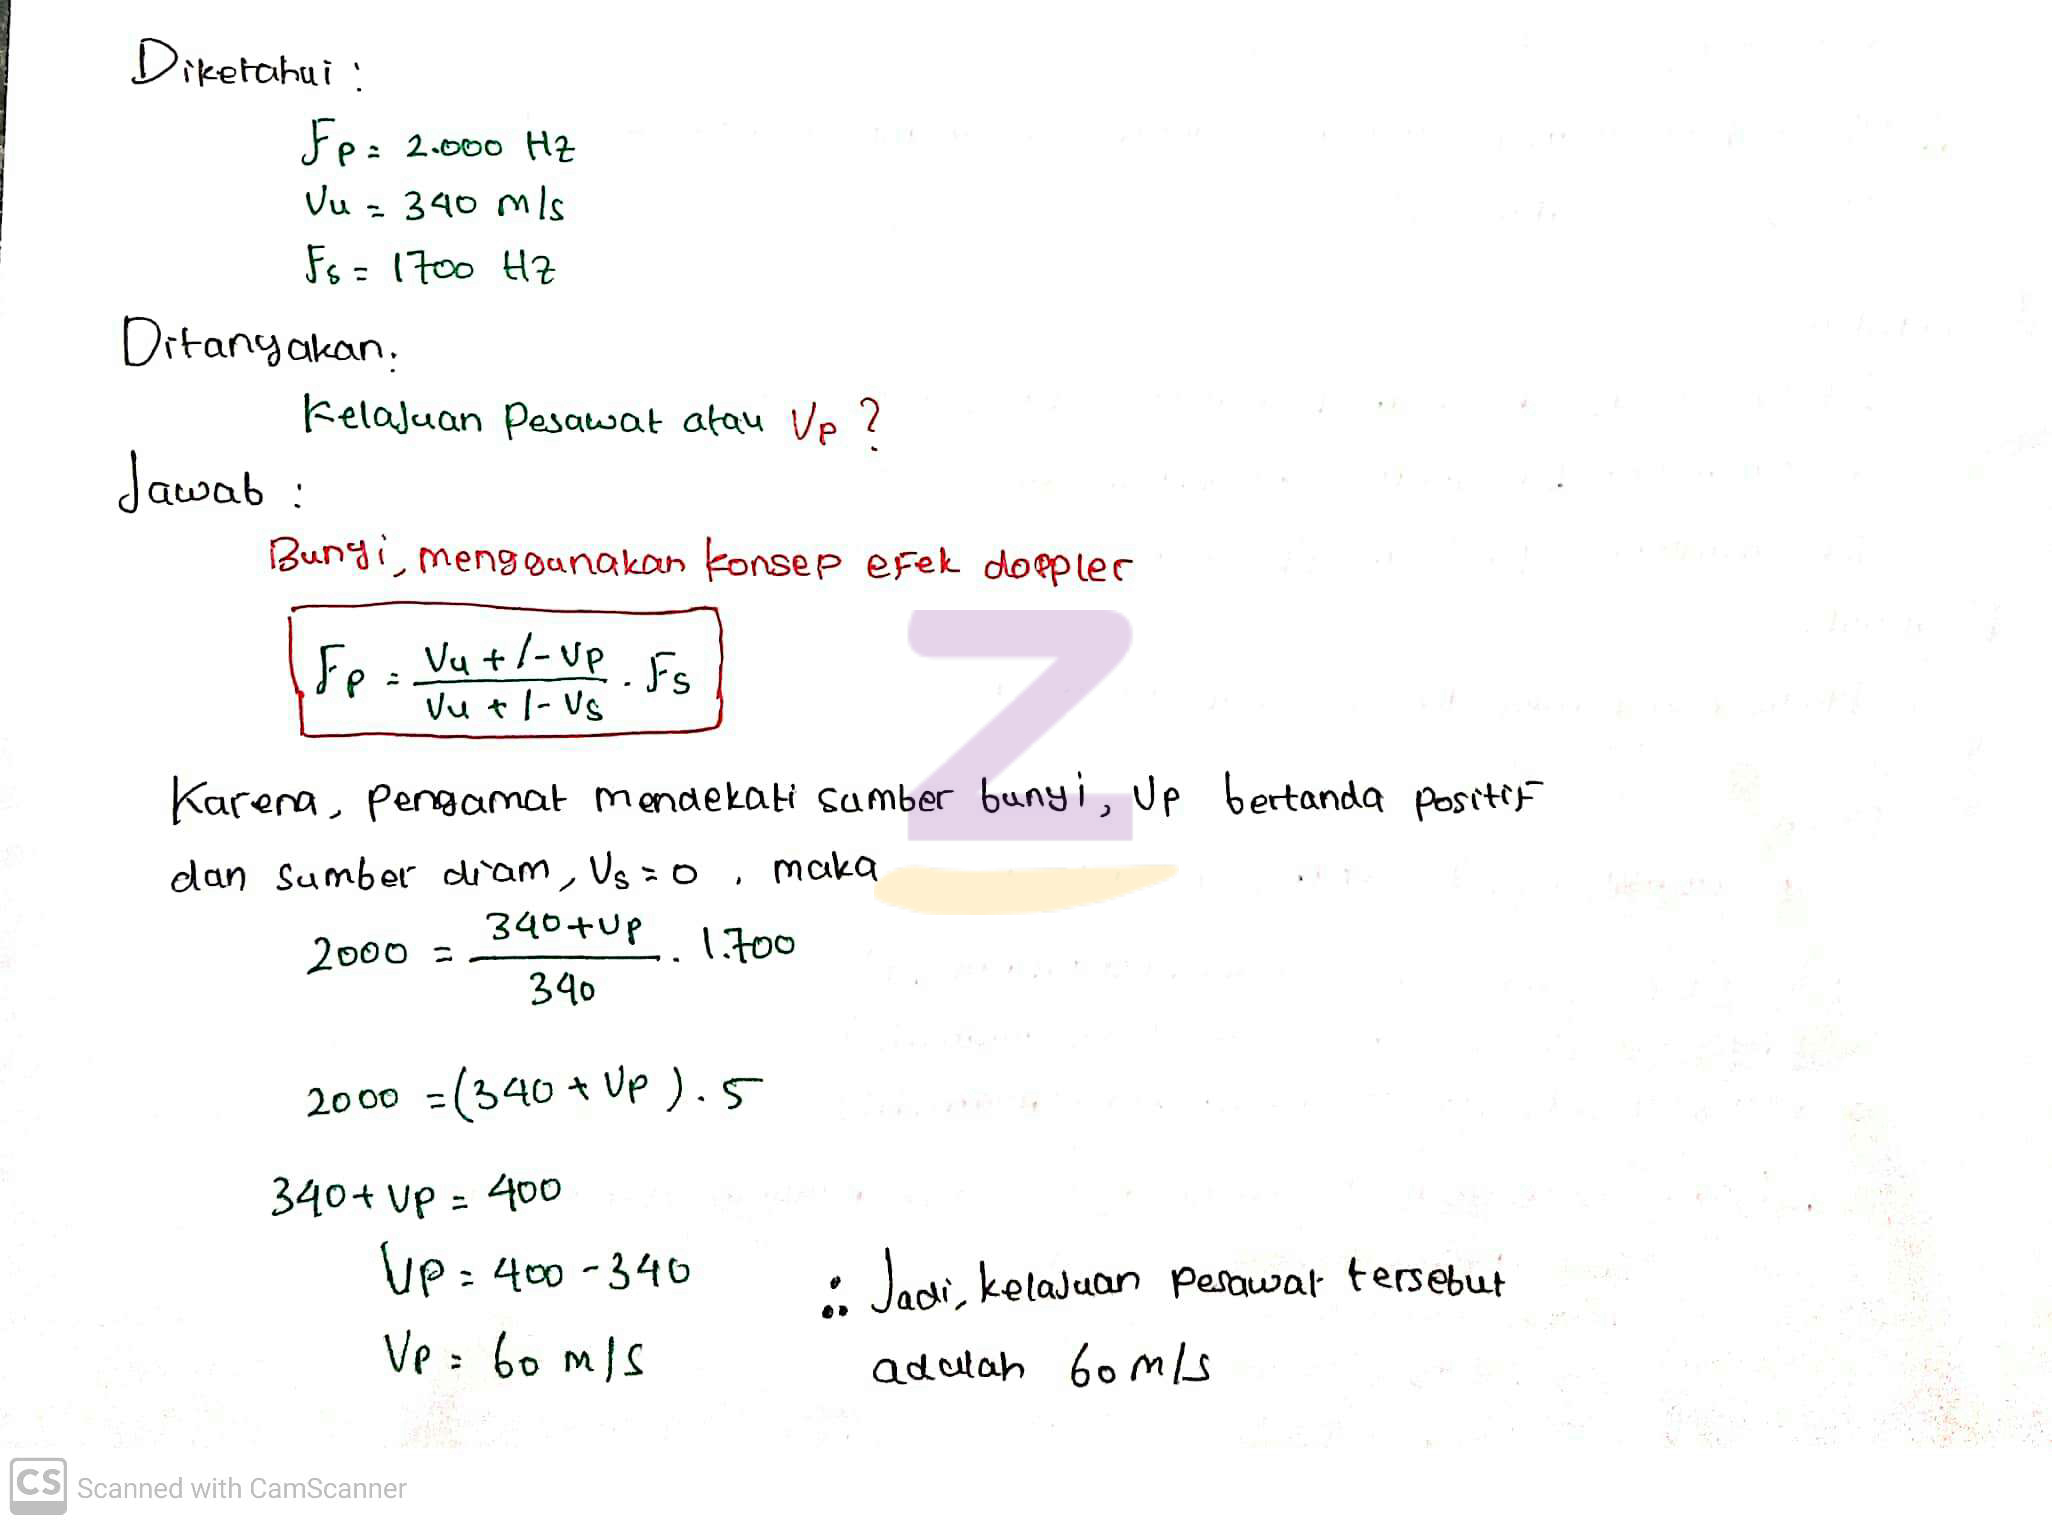 Diketahui :
Fp = 2.000 Hz
Vu = 340 m/s
Fs = 1700 Hz
Ditanyakan :
Kelajuan Pesawat atau Vp ?
Jawab :
Bunyi, menggunakan konsep efek doppler
Fp = Vu +/- Vp / Vu +/- Vs . Fs
Karena, pengamat mendekati sumber bunyi, Vp bertanda positif
dan sumber diam, Vs = 0 , maka
2000 = 340 + Vp / 340 . 1.700
2000 = (340 + Vp ) . 5
340 + Vp = 400
Vp = 400 - 340
Vp = 60 m/s
∴ Jadi, kelajuan pesawat tersebut
adalah 60 m/s
Z
CS Scanned with CamScanner